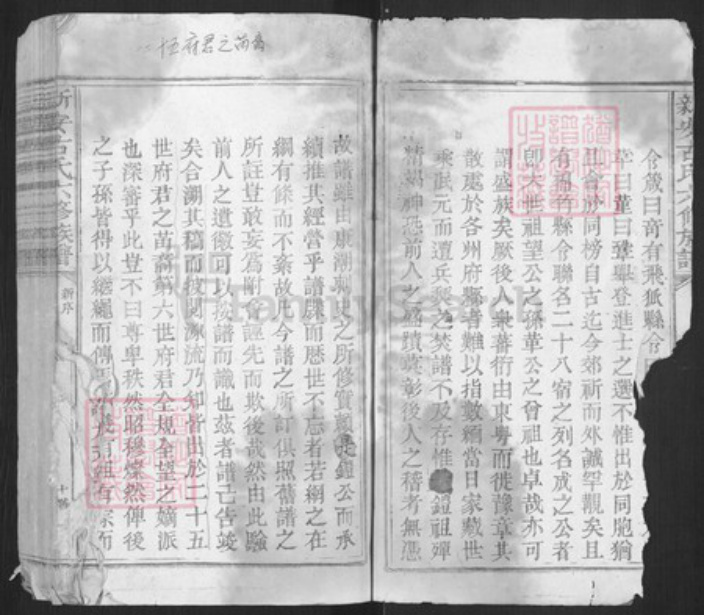 新安古氏六修族譜
令箴曰奇有飛狐縣令
章曰華曰鞏舉登進士之選不惟出於同胞猶
且會於同榜自古迄今郊祈而外誠罕覯矣且
有縣令聯名二十八宿之列名成之公者
即大世祖望公之孫華公之曾祖也卓哉亦可
謂盛族矣厥後人衆蕃衍由東粤而徙豫章其
散處於各州府縣者難以指數緬當日家嚴世
乘既元而遭兵燹之焚譜不及存惟鎧祖殫
精竭神恐前人之盛蹟莫彰後人之稽者無憑
二十五府君之苗裔
故譜雖由康潮刺史之所修實賴鎧公而承
續推其經營乎譜牒而歷世不忘者若綱之在
綱有條而不紊故凡今譜之所訂俱照舊譜之
所註豈敢妄為附會誣先而欺後哉然由此驗
前人之遺徽可以按譜而識也茲者譜已告竣
矣合溯其稿而披閱源流乃知皆出於二十五
世府君之苗裔第六世府君全規全望之嫡派
也深審乎此豈不曰尊卑秩然昭穆燦然俾後
之子孫皆得以繼繩而傳有祖有宗而
新安古氏六修族譜
新序